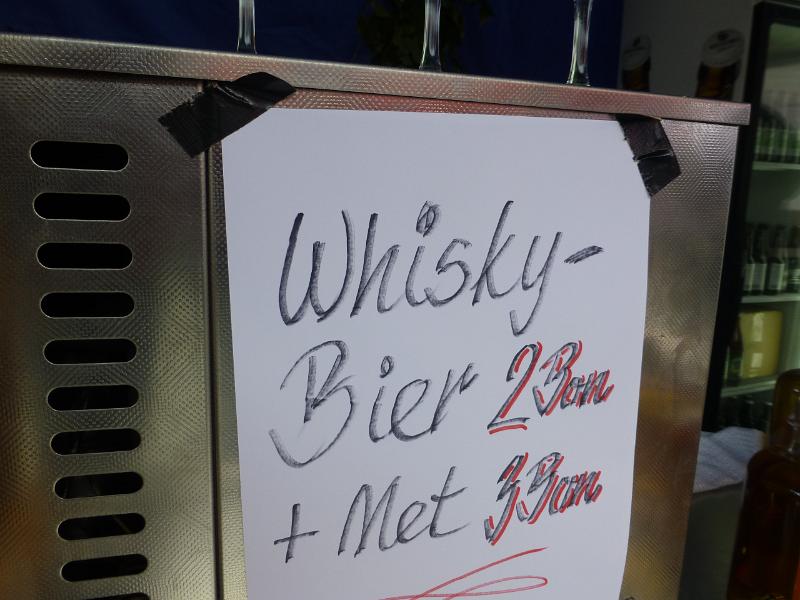 Whisky-
Bier 2 Bon
+ Met 3 Bon